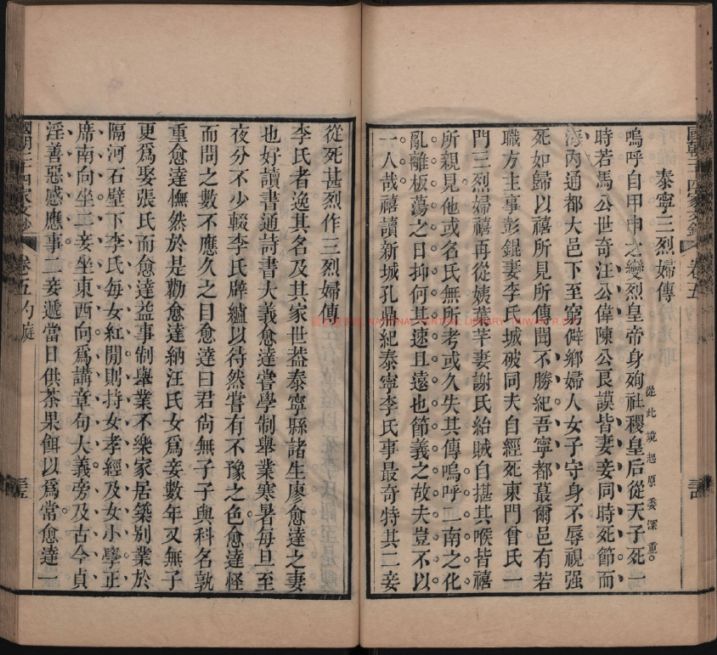 泰寧三烈婦傳
從此說起原委深重
嗚呼自甲申之變烈皇帝身殉社稷皇后從天子死一
時若馬公世奇汪公偉陳公良謨皆妻妾同時死節而
海內通都大邑下至窮僻鄉婦人女子守身不辱視强
死如歸以禧所見所傳聞不勝紀吾寧都蕞爾邑有若
職方主事彭錕妻李氏城破同夫自經死東門曾氏一
門三烈婦禧再從姨葉芉妻謝氏紿賊自揕其喉皆禧
所親見他或名氏無所考或久失其傳嗚呼二南之化
亂離板蕩之日抑何其速且遠也節義之故夫豈不以
一人哉禧讀新城孔鼎紀泰寧李氏事最奇特其二妾
從死甚烈作三烈婦傳
李氏者逸其名及其家世葢泰寧縣諸生廖愈達之妻
也好讀書通詩書大義愈達嘗學制舉業寒暑每旦至
夜分不少輟李氏辟纑以待然嘗有不豫之色愈達怪
而問之數不應久之曰愈達曰君尚無子子與科名孰
重愈達憮然於是勸愈達納汪氏女爲妾數年又無子
更爲娶張氏而愈達葢事制舉業不樂家居築别業於
隔河石壁下李氏每女紅閒則持女孝經及女小學正
席南向坐二妾坐東西向爲講章句大義旁及古今貞
淫善惡感應事二妾遞當日供茶果餌以爲當愈達一
國朝三十四家文鈔
卷五
國朝三十四家文鈔
卷五